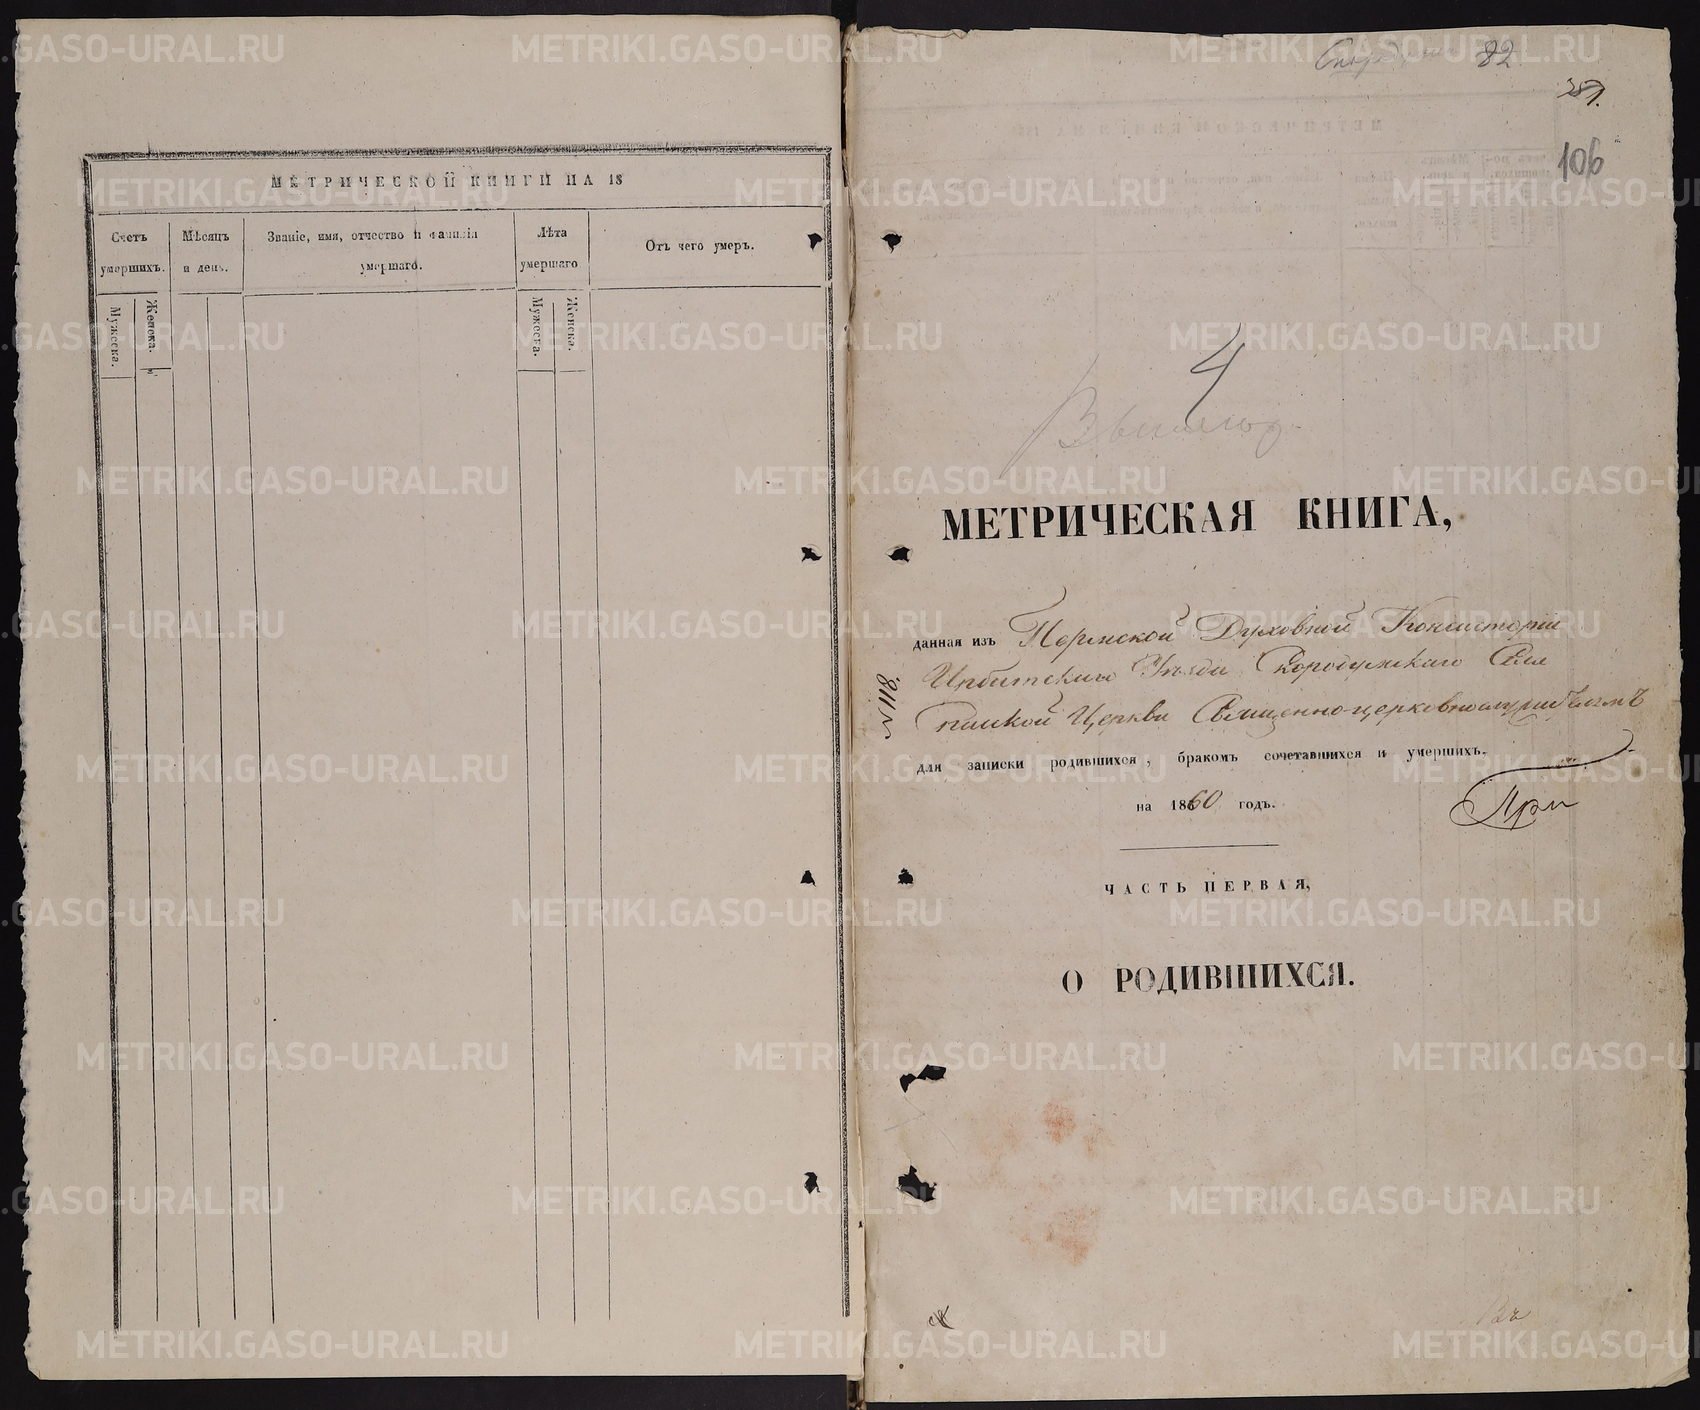 МЕТРИЧЕСКОЙ КНИГИ НА 18
Счетъ умершихъ.
Мѣсяцъ и день.
Званіе, имя, отчество и фамилія умершаго.
Лѣта умершаго
Отъ чего умеръ.
Мужеска.
Женска.
Мужеска.
Женска.
82
106
4
МЕТРИЧЕСКАЯ КНИГА,
данная изъ Пермской Духовной Консисторіи
Ирбитскаго Уѣзда Скородумскаго Села
Церкви Священно-церковнослужителямъ
для записки родившихся, бракомъ сочетавшихся и умершихъ.
на 1860 годъ.
ЧАСТЬ ПЕРВАЯ,
О РОДИВШИХСЯ.
METRIKI.GASO-URAL.RU